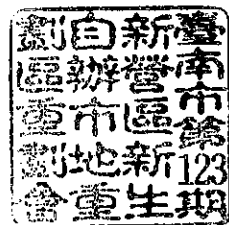 臺南市第123期
新營區新生
自辦市地重
劃區重劃會